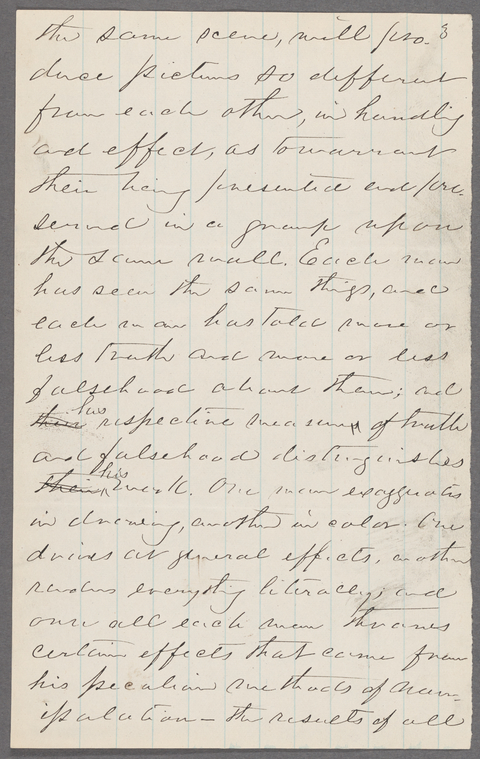 3
the same scene, will pro-
duce pictures so different
from each other, in handling
and effect, as to warrant
their being presented and pre-
served in a group upon
the same wall. Each man
has seen the same things, and
each man has told more or
less truth and more or less
falsehood about them; and
his
their respective measure of truth
and falsehood distinguishes
his
their work. One man exaggerates
in drawing, another in color. One
drives at general effects, another
renders everything literally, and
over all each man throws
certain effects that come from
his peculiar methods of man-
ipulation — the results of all